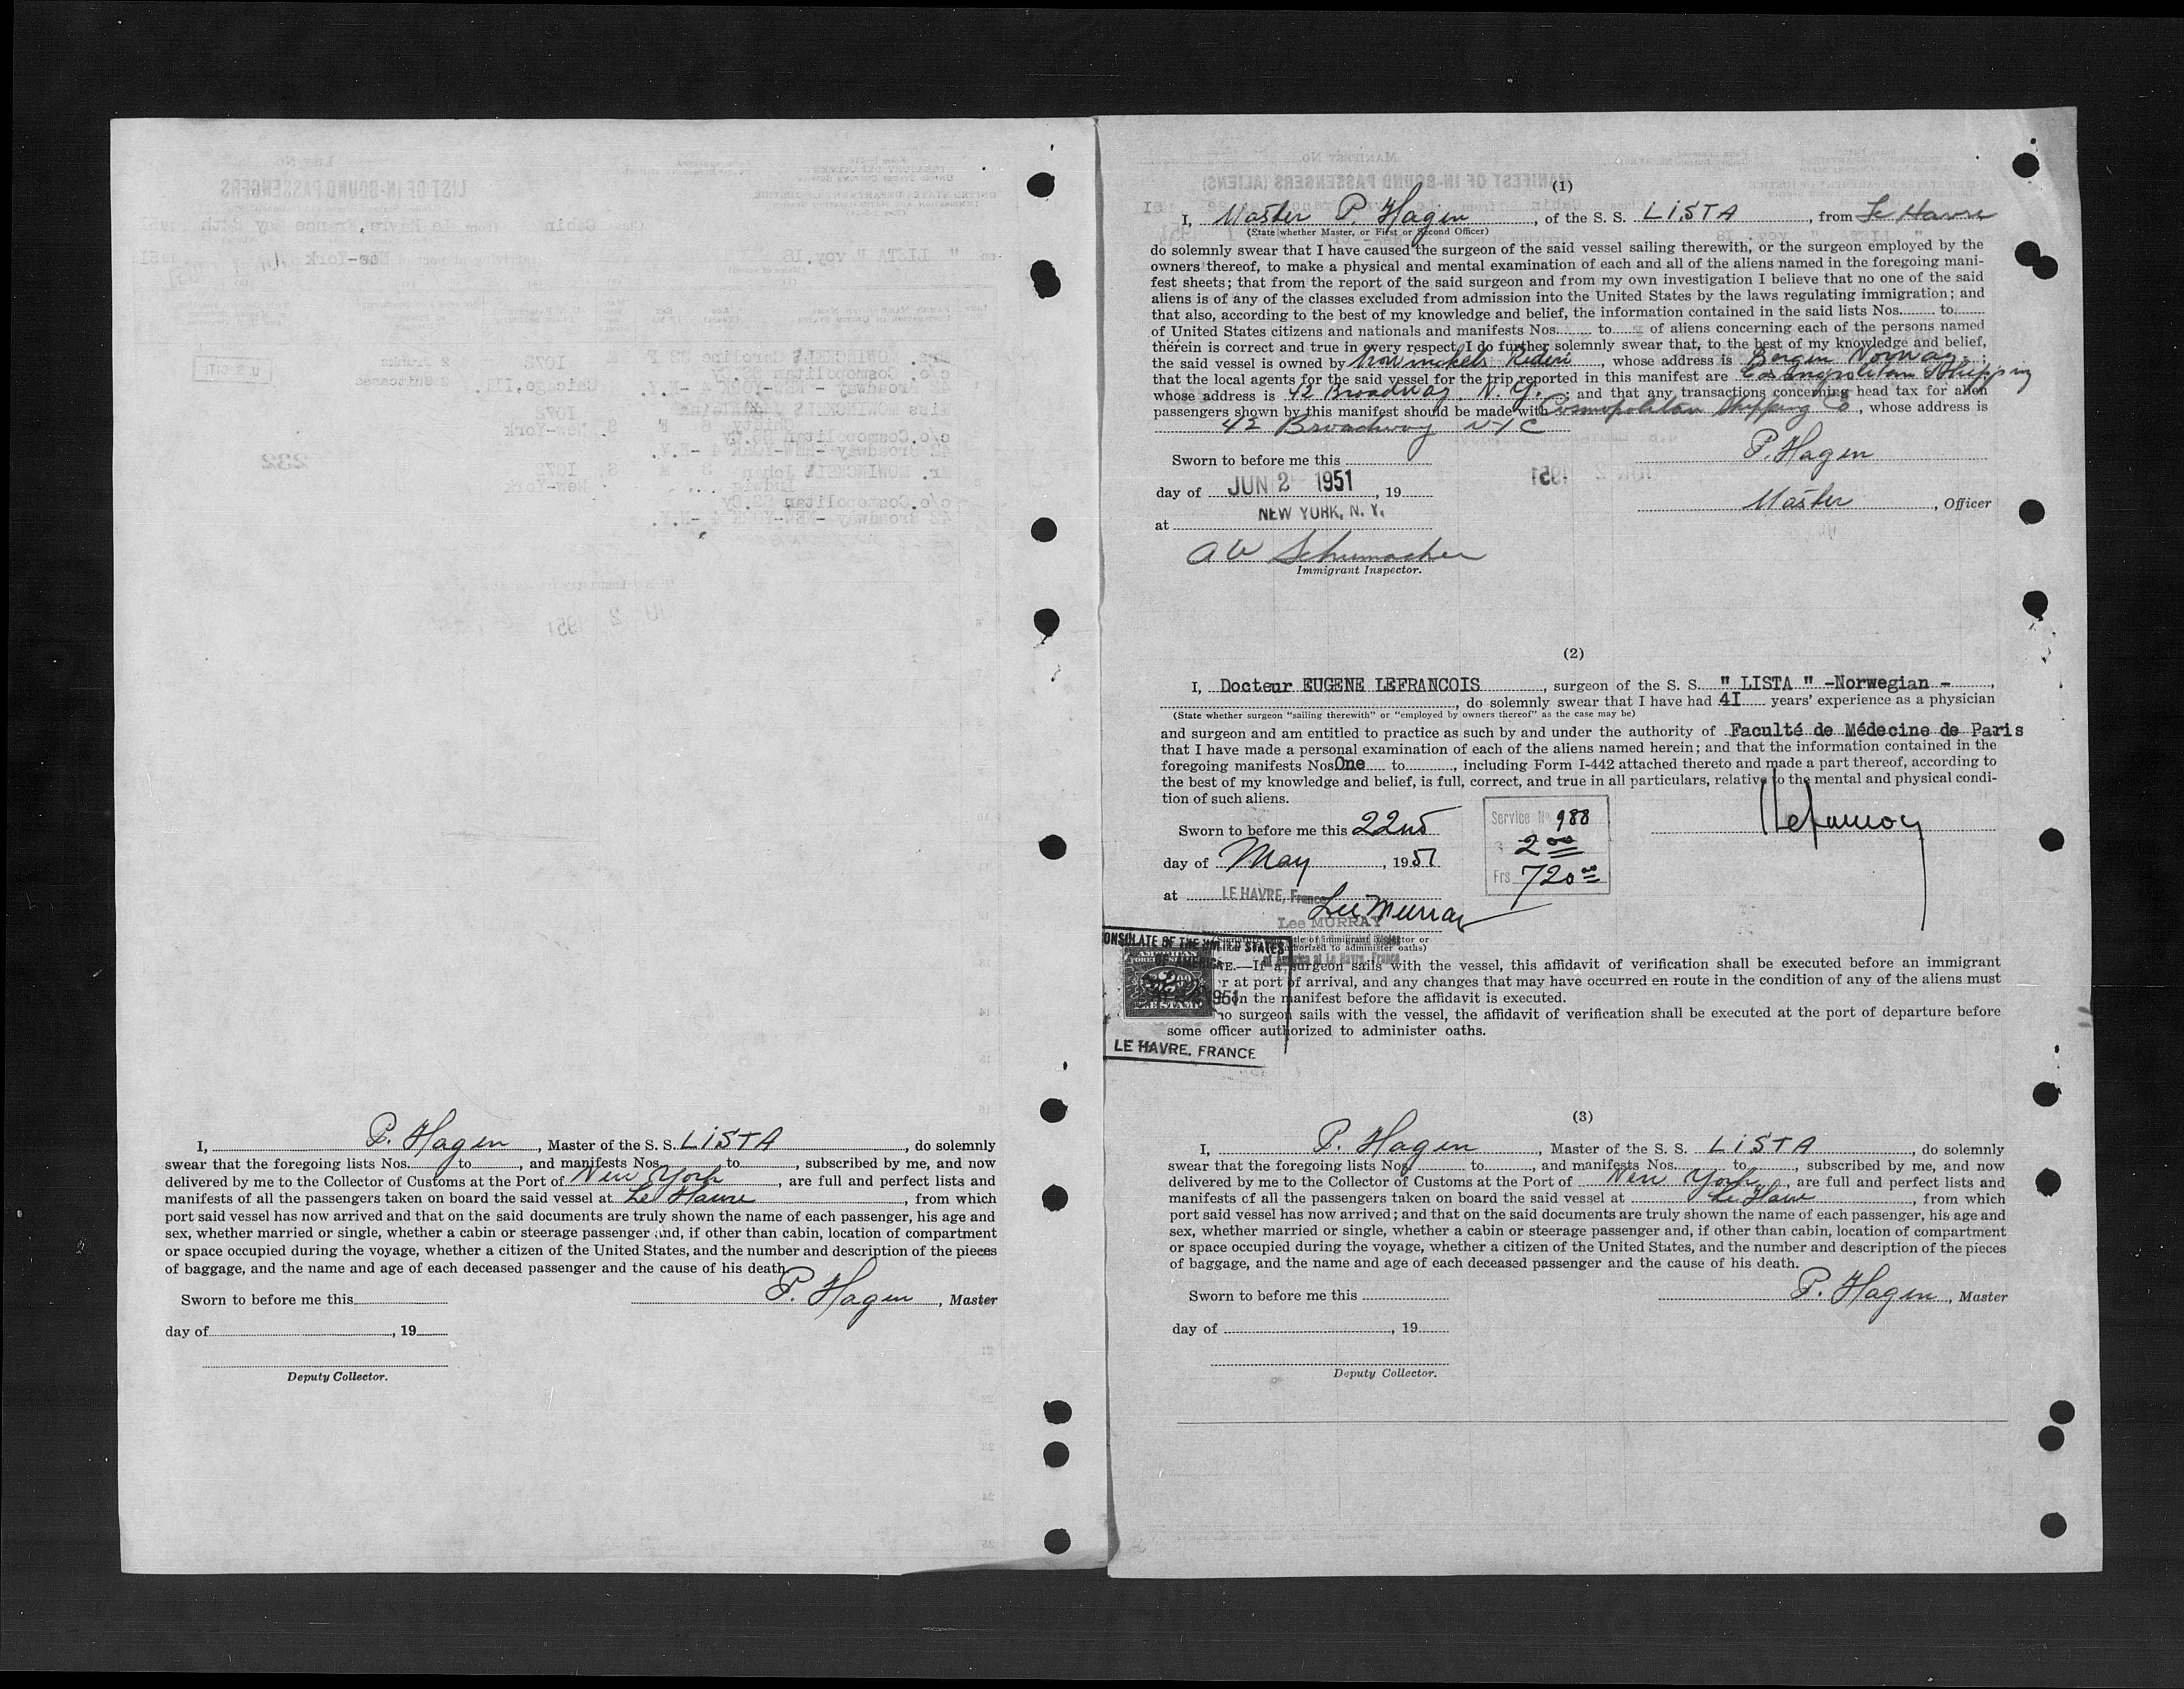 I, P. Hagen, Master of the S. S. LISTA, do solemnly
swear that the foregoing lists Nos. to, and manifests Nos. to, subscribed by me, and now
delivered by me to the Collector of Customs at the Port of New York, are full and perfect lists and
manifests of all the passengers taken on board the said vessel at Le Havre, from which
port said vessel has now arrived and that on the said documents are truly shown the name of each passenger, his age and
sex, whether married or single, whether a cabin or steerage passenger and, if other than cabin, location of compartment
or space occupied during the voyage, whether a citizen of the United States, and the number and description of the pieces
of baggage, and the name and age of each deceased passenger and the cause of his death.
Sworn to before me this
P. Hagen, Master
day of, 19
Deputy Collector.
(1)
I, Master P. Hagen, of the S. S. LISTA, from Le Havre
(State whether Master, or First or Second Officer)
do solemnly swear that I have caused the surgeon of the said vessel sailing therewith, or the surgeon employed by the
owners thereof, to make a physical and mental examination of each and all of the aliens named in the foregoing mani-
fest sheets; that from the report of the said surgeon and from my own investigation I believe that no one of the said
aliens is of any of the classes excluded from admission into the United States by the laws regulating immigration; and
that also, according to the best of my knowledge and belief, the information contained in the said lists Nos. to
of United States citizens and nationals and manifests Nos. to of aliens concerning each of the persons named
therein is correct and true in every respect. I do further solemnly swear that, to the best of my knowledge and belief,
the said vessel is owned by Rederi, whose address is Bergen Norway;
that the local agents for the said vessel for the trip reported in this manifest are Cosmopolitan Shipping
whose address is 42 Broadway N.Y.; and that any transactions concerning head tax for alien
passengers shown by this manifest should be made with Cosmopolitan Shipping Co, whose address is
42 Broadway NYC
Sworn to before me this
P. Hagen
day of JUN 2 1951, 19
Master, Officer
NEW YORK, N. Y.
at
A W Schumacher
Immigrant Inspector.
(2)
I, Docteur EUGENE LEFRANCOIS, surgeon of the S. S. " LISTA " -Norwegian -,
, do solemnly swear that I have had 4I years' experience as a physician
(State whether surgeon "sailing therewith" or "employed by owners thereof" as the case may be)
and surgeon and am entitled to practice as such by and under the authority of Faculté de Médecine de Paris
that I have made a personal examination of each of the aliens named herein; and that the information contained in the
foregoing manifests Nos One to, including Form I-442 attached thereto and made a part thereof, according to
the best of my knowledge and belief, is full, correct, and true in all particulars, relative to the mental and physical condi-
tion of such aliens.
Service No 988
Sworn to before me this 22nd
2 00
day of May, 1951
Frs 720 00
at LE HAVRE, France
Lee Murray
Lee MURRAY
CONSULATE OF THE UNITED STATES
OF AMERICA
authorized to administer oaths)
of America at Le Havre, France
E.—If a surgeon sails with the vessel, this affidavit of verification shall be executed before an immigrant
r at port of arrival, and any changes that may have occurred en route in the condition of any of the aliens must
1951
on the manifest before the affidavit is executed.
no surgeon sails with the vessel, the affidavit of verification shall be executed at the port of departure before
some officer authorized to administer oaths.
LE HAVRE, FRANCE
(3)
I, P. Hagen, Master of the S. S. LISTA, do solemnly
swear that the foregoing lists Nos. to, and manifests Nos. to, subscribed by me, and now
delivered by me to the Collector of Customs at the Port of New York, are full and perfect lists and
manifests of all the passengers taken on board the said vessel at Le Havre, from which
port said vessel has now arrived; and that on the said documents are truly shown the name of each passenger, his age and
sex, whether married or single, whether a cabin or steerage passenger and, if other than cabin, location of compartment
or space occupied during the voyage, whether a citizen of the United States, and the number and description of the pieces
of baggage, and the name and age of each deceased passenger and the cause of his death.
Sworn to before me this
P. Hagen, Master
day of, 19
Deputy Collector.